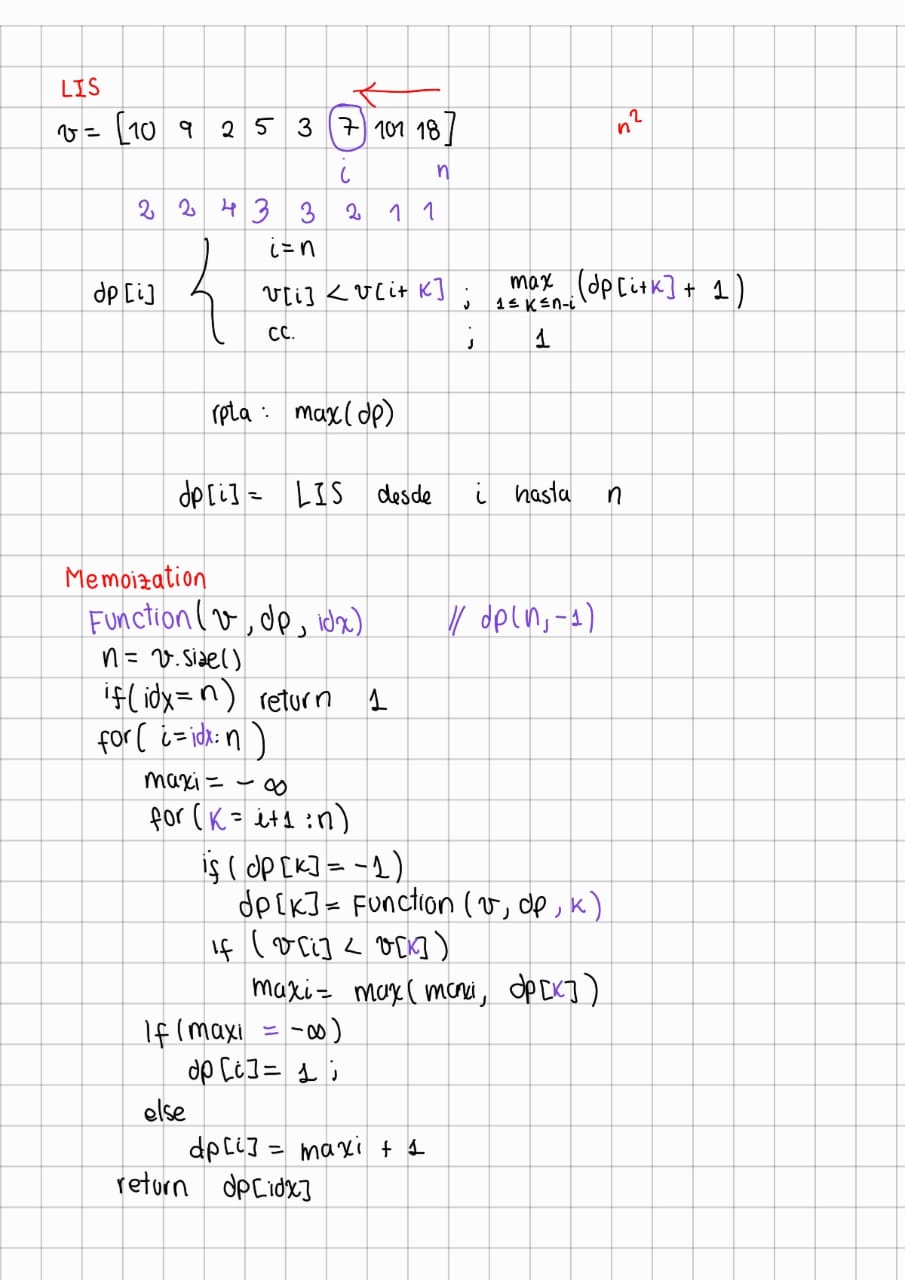 LIS
v = [10 9 2 5 3 7 101 18] n²
i n
2 2 4 3 3 2 1 1
i=n
dp[i] { v[i] < v[i+K] ; max (dp[i+K] + 1)
1≤K≤n-i
cc. ; 1
rpta : max(dp)
dp[i] = LIS desde i hasta n
Memoization
Function(v, dp, idx) // dp(n,-1)
n = v.size()
if(idx=n) return 1
for( i=idx:n )
maxi = -∞
for (K = i+1 : n)
if ( dp[K] = -1)
dp[K] = Function (v, dp, K)
if (v[i] < v[K])
maxi = max(maxi, dp[K])
If (maxi = -∞)
dp[i] = 1 ;
else
dp[i] = maxi + 1
return dp[idx]